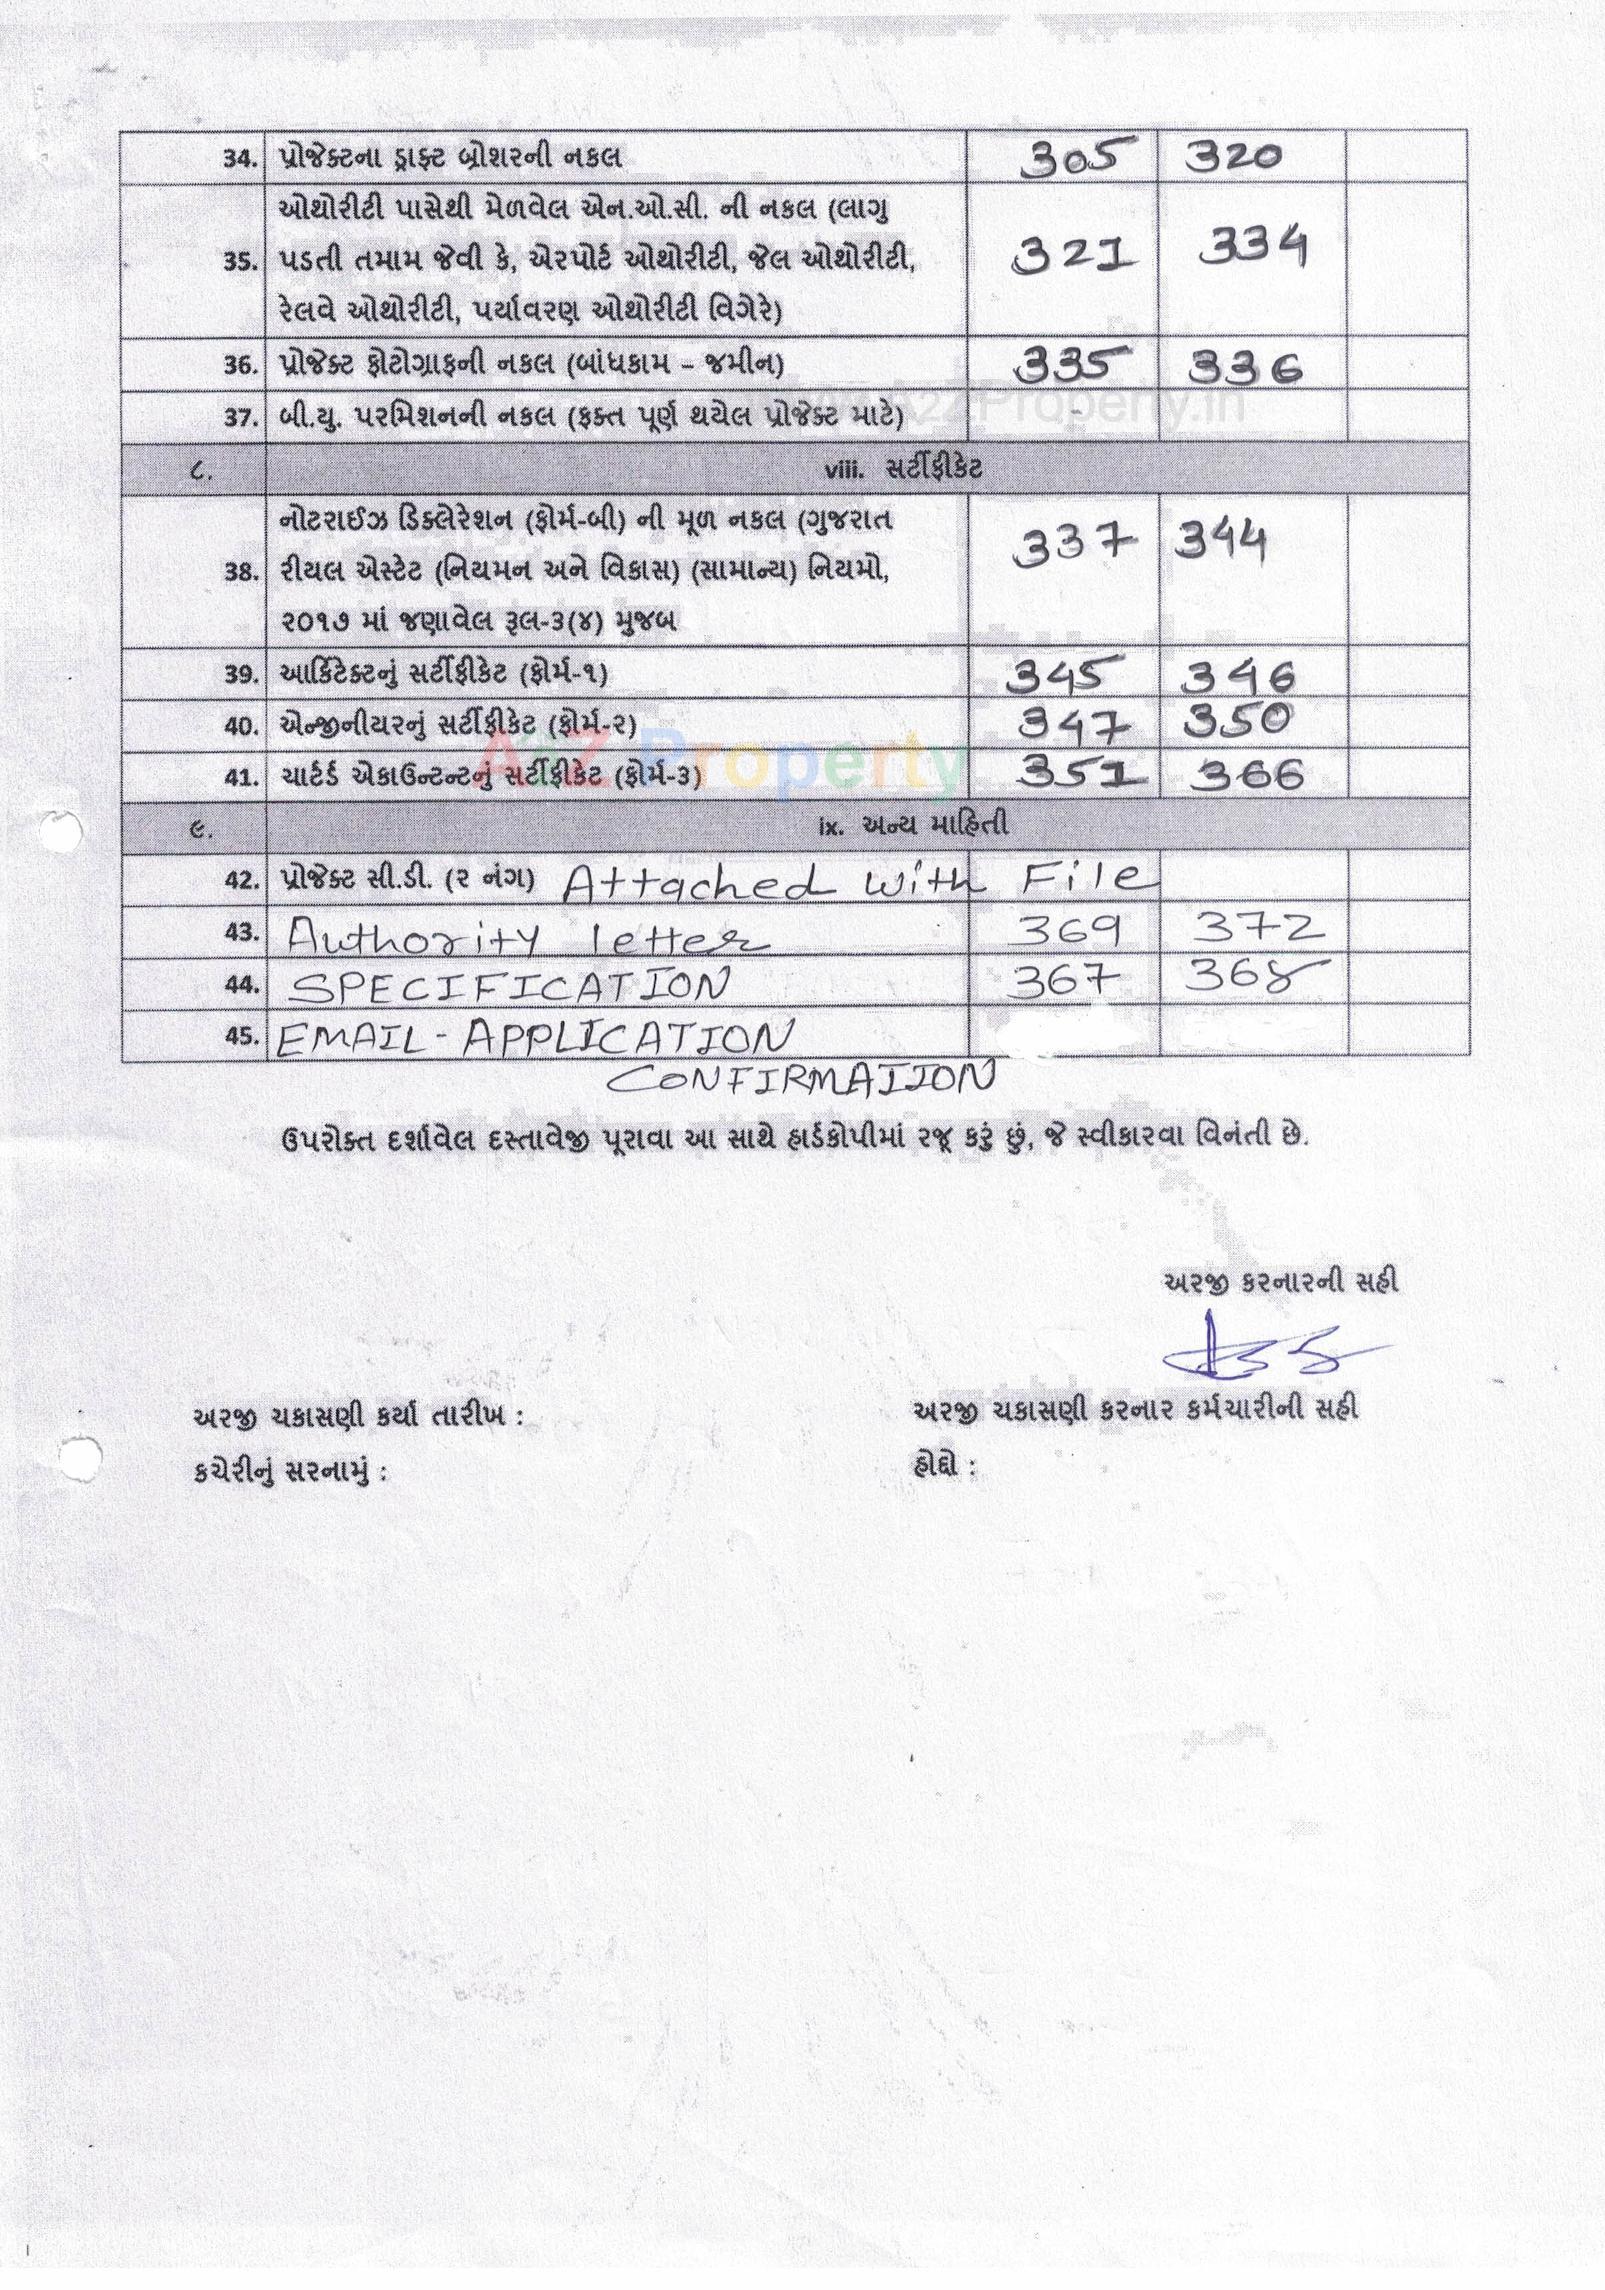 34. પ્રોજેક્ટના ડ્રાફ્ટ બ્રોશરની નકલ 305 320
ઓથોરીટી પાસેથી મેળવેલ એન.ઓ.સી. ની નકલ (લાગુ
35. પડતી તમામ જેવી કે, એરપોર્ટ ઓથોરીટી, જેલ ઓથોરીટી, 321 334
રેલવે ઓથોરીટી, પર્યાવરણ ઓથોરીટી વિગેરે)
36. પ્રોજેક્ટ ફોટોગ્રાફની નકલ (બાંધકામ – જમીન) 335 336
A2ZProperty.in
37. બી.યુ. પરમિશનની નકલ (ફક્ત પૂર્ણ થયેલ પ્રોજેક્ટ માટે) -
૮. viii. સર્ટીફીકેટ
નોટરાઈઝ ડિક્લેરેશન (ફોર્મ-બી) ની મૂળ નકલ (ગુજરાત
38. રીયલ એસ્ટેટ (નિયમન અને વિકાસ) (સામાન્ય) નિયમો, 337 344
૨૦૧૭ માં જણાવેલ રૂલ-૩(૪) મુજબ
39. આર્કિટેક્ટનું સર્ટીફીકેટ (ફોર્મ-૧) 345 346
40. એન્જીનીયરનું સર્ટીફીકેટ (ફોર્મ-૨) 347 350
A2Z Property
41. ચાર્ટર્ડ એકાઉન્ટન્ટનું સર્ટીફીકેટ (ફોર્મ-૩) 351 366
૯. ix. અન્ય માહિતી
42. પ્રોજેક્ટ સી.ડી. (૨ નંગ) Attached with File
43. Authority letter 369 372
44. SPECIFICATION 367 368
45. EMAIL-APPLICATION
CONFIRMATION
ઉપરોક્ત દર્શાવેલ દસ્તાવેજી પૂરાવા આ સાથે હાર્ડકોપીમાં રજૂ કરું છું, જે સ્વીકારવા વિનંતી છે.
અરજી કરનારની સહી
અરજી ચકાસણી કર્યા તારીખ :
અરજી ચકાસણી કરનાર કર્મચારીની સહી
કચેરીનું સરનામું :
હોદ્દો :